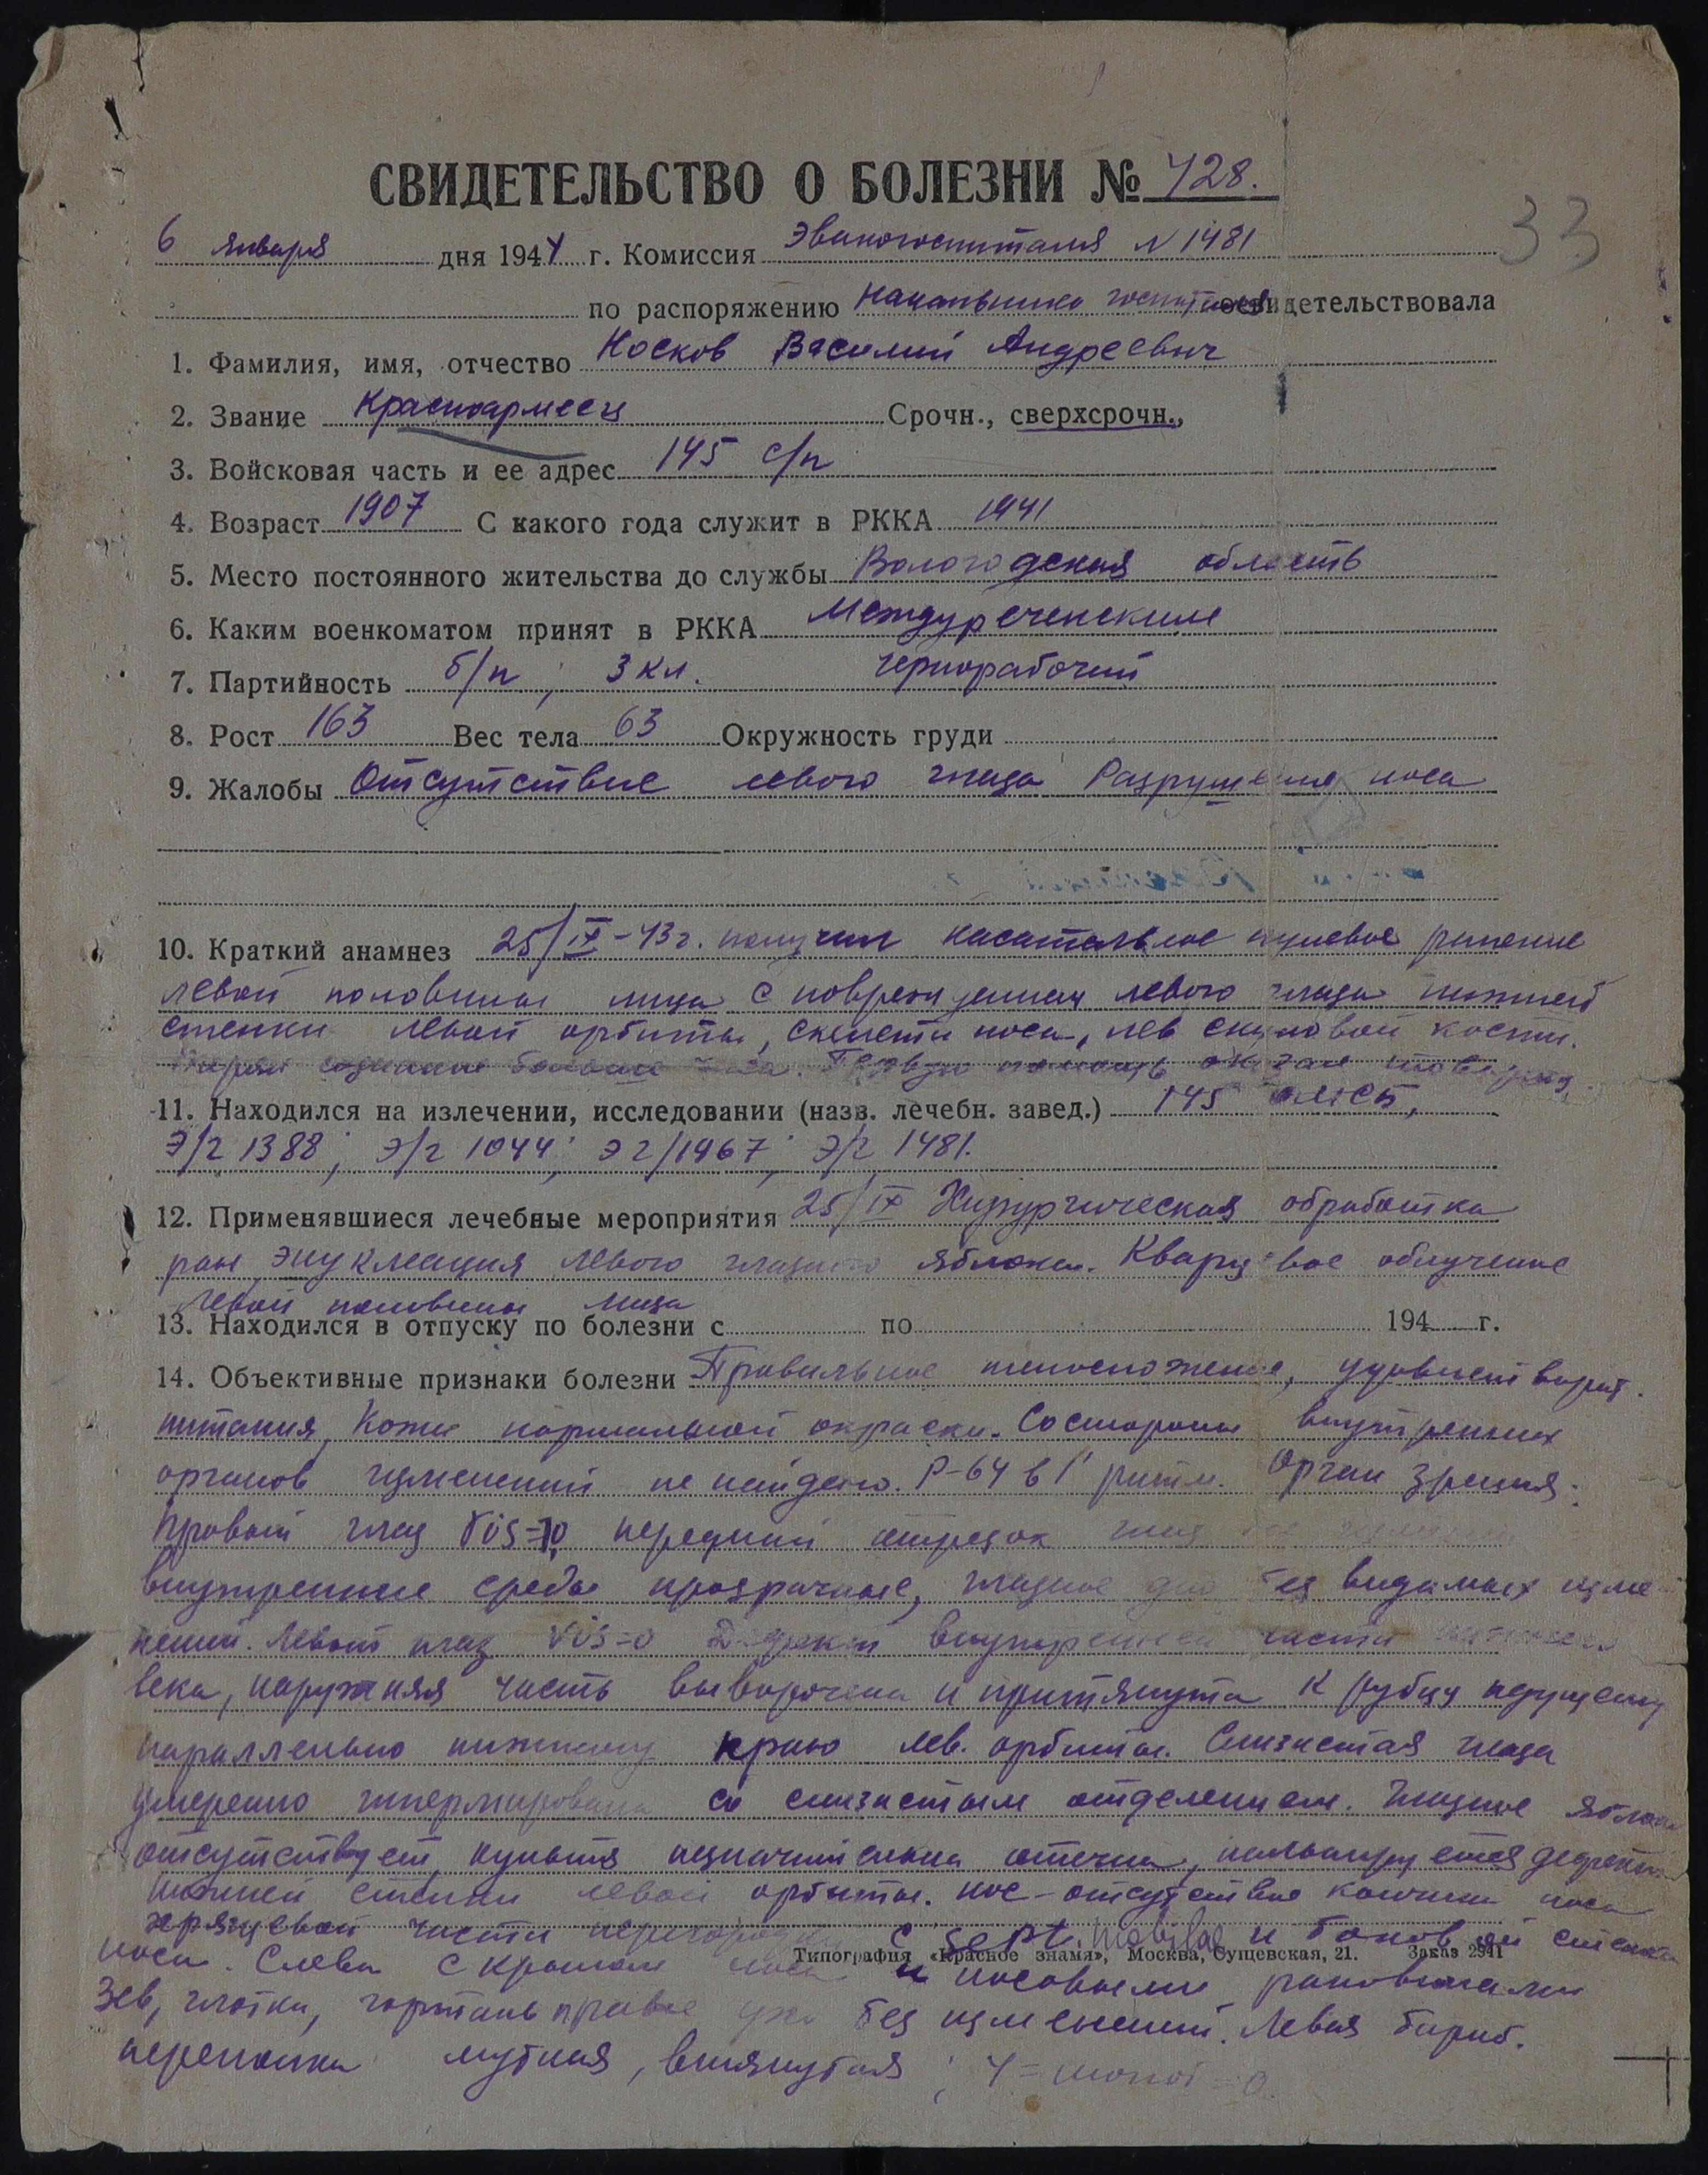 33
СВИДЕТЕЛЬСТВО О БОЛЕЗНИ № 428.
6 января дня 1944 г. Комиссия Эвакогоспиталя N 1481
по распоряжению начальника госпиталя освидетельствовала
1. Фамилия, имя, отчество Носков Василий Андреевич
2. Звание Красноармеец Срочн., сверхсрочн.,
3. Войсковая часть и ее адрес 145 с/п
4. Возраст 1907 С какого года служит в РККА 1941
5. Место постоянного жительства до службы Вологодская область
6. Каким военкоматом принят в РККА Междуреченским
7. Партийность б/п ; 3 кл. чернорабочий
8. Рост 163 Вес тела 63 Окружность груди
9. Жалобы Отсутствие левого глаза Разрушения носа
10. Краткий анамнез 25/IX-43 г. получил касательное пулевое ранение
левой половины лица с повреждением левого глаза нижней
стенки левой орбиты, скелета носа, лев скуловой кости.
Терял сознание больше часа. Первую помощь оказал товарищ.
11. Находился на излечении, исследовании (назв. лечебн. завед.) 145 омсб,
Э/г 1388; Э/г 1044; Эг/1967; Э/г 1481.
12. Применявшиеся лечебные мероприятия 25/IX Хирургическая обработка
ран, энуклеация левого глазного яблока. Кварцевое облучение
левой половины лица
13. Находился в отпуску по болезни с по 194 г.
14. Объективные признаки болезни Правильное телосложение, удовлетворит.
питания, Кожи нормальной окраски. Со стороны внутренних
органов изменений не найдено. Р-64 в 1' ритм. Орган зрения:
Правый глаз Vis=1,0 передний отрезок
внутренние среды прозрачные, глазное дно без видимых изме
нений. Левый глаз Vis=0 Дефект внутренней части нижнего
века, наружняя часть выворочена и притянута к рубцу идущему
параллельно нижнему краю лев. орбиты. Слизистая глаза
умеренно гиперемирована со слизистым отделением. Глазное яблоко
отсутствует, культя незначительна отечна, пальпируется дефект
нижней стенки левой орбиты. Нос - отсутствие кончика носа
хрящевой части перегородки с sept. mobilae и боковой стенки
Типография «Красное знамя», Москва, Сущевская, 21. Заказ 2941
носа. Слева с крылом носа и носовыми раковинами
Зев, глотки, гортань правое ухо без изменений. Левая бараб.
перепонка мутная, втянутая;